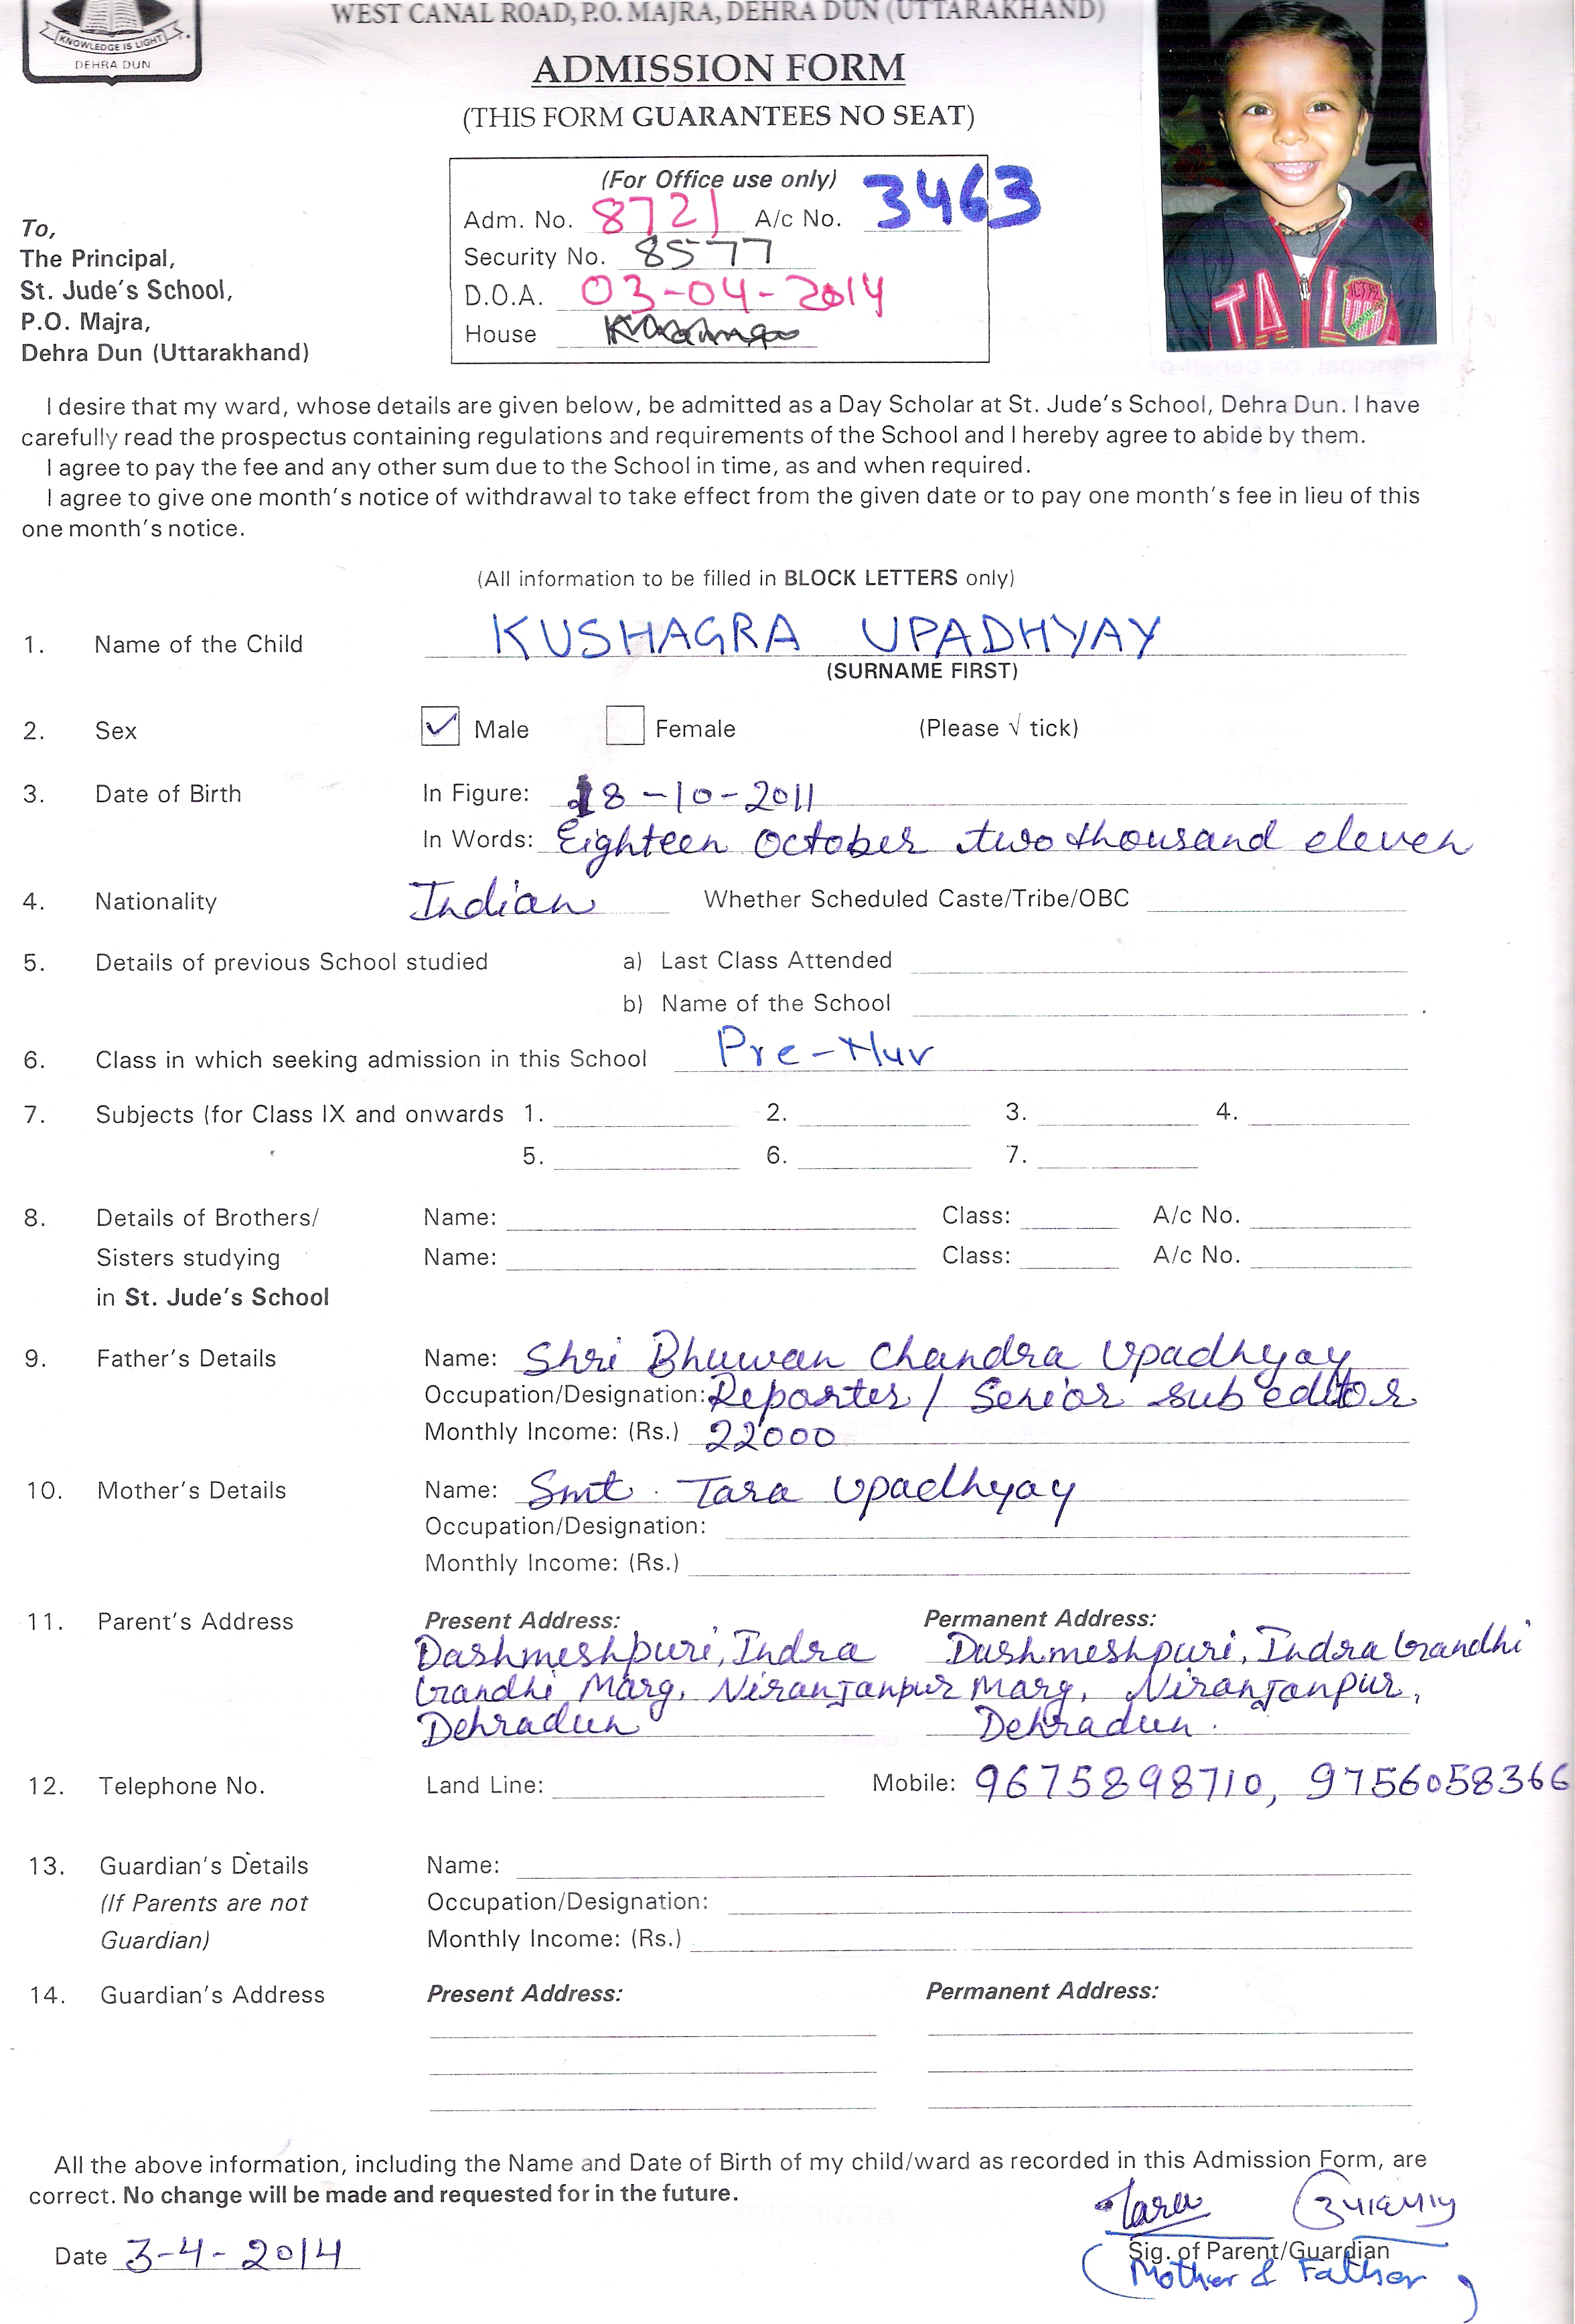 WEST CANAL ROAD, P.O. MAJRA, DEHRA DUN (UTTARAKHAND)
KNOWLEDGE IS LIGHT
DEHRA DUN
ADMISSION FORM
(THIS FORM GUARANTEES NO SEAT)
(For Office use only)
Adm. No. 8721 A/c No. 3463
Security No. 8577
D.O.A. 03-04-2014
House
To,
The Principal,
St. Jude's School,
P.O. Majra,
Dehra Dun (Uttarakhand)
I desire that my ward, whose details are given below, be admitted as a Day Scholar at St. Jude's School, Dehra Dun. I have
carefully read the prospectus containing regulations and requirements of the School and I hereby agree to abide by them.
I agree to pay the fee and any other sum due to the School in time, as and when required.
I agree to give one month's notice of withdrawal to take effect from the given date or to pay one month's fee in lieu of this
one month's notice.
(All information to be filled in BLOCK LETTERS only)
1. Name of the Child KUSHAGRA UPADHYAY
(SURNAME FIRST)
2. Sex ✓ Male Female (Please √ tick)
3. Date of Birth In Figure: 18-10-2011
In Words: Eighteen October two thousand eleven
4. Nationality Indian Whether Scheduled Caste/Tribe/OBC
5. Details of previous School studied a) Last Class Attended
b) Name of the School
6. Class in which seeking admission in this School Pre-Nur
7. Subjects (for Class IX and onwards 1. 2. 3. 4.
5. 6. 7.
8. Details of Brothers/ Name: Class: A/c No.
Sisters studying Name: Class: A/c No.
in St. Jude's School
9. Father's Details Name: Shri Bhuwan Chandra Upadhyay
Occupation/Designation: Reporter / Senior sub editor
Monthly Income: (Rs.) 22000
10. Mother's Details Name: Smt. Tara Upadhyay
Occupation/Designation:
Monthly Income: (Rs.)
11. Parent's Address Present Address: Permanent Address:
Dashmeshpuri, Indra Dashmeshpuri, Indra Gandhi
Gandhi Marg, Niranjanpur Marg, Niranjanpur,
Dehradun Dehradun.
12. Telephone No. Land Line: Mobile: 9675898710, 9756058366
13. Guardian's Details Name:
(If Parents are not Occupation/Designation:
Guardian) Monthly Income: (Rs.)
14. Guardian's Address Present Address: Permanent Address:
All the above information, including the Name and Date of Birth of my child/ward as recorded in this Admission Form, are
correct. No change will be made and requested for in the future.
Tara
Date 3-4-2014 Sig. of Parent/Guardian
(Mother & Father)